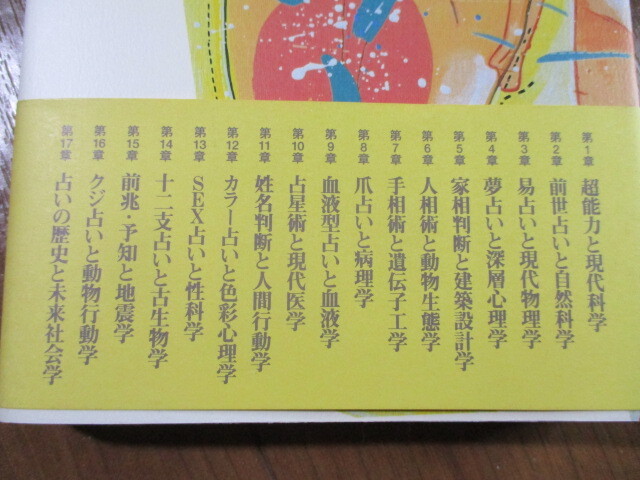 第1章 超能力と現代科学
第2章 前世占いと自然科学
第3章 易占いと現代物理学
第4章 夢占いと深層心理学
第5章 家相判断と建築設計学
第6章 人相術と動物生態学
第7章 手相術と遺伝子工学
第8章 爪占いと病理学
第9章 血液型占いと血液学
第10章 占星術と現代医学
第11章 姓名判断と人間行動学
第12章 カラー占いと色彩心理学
第13章 SEX占いと性科学
第14章 十二支占いと古生物学
第15章 前兆・予知と地震学
第16章 クジ占いと動物行動学
第17章 占いの歴史と未来社会学